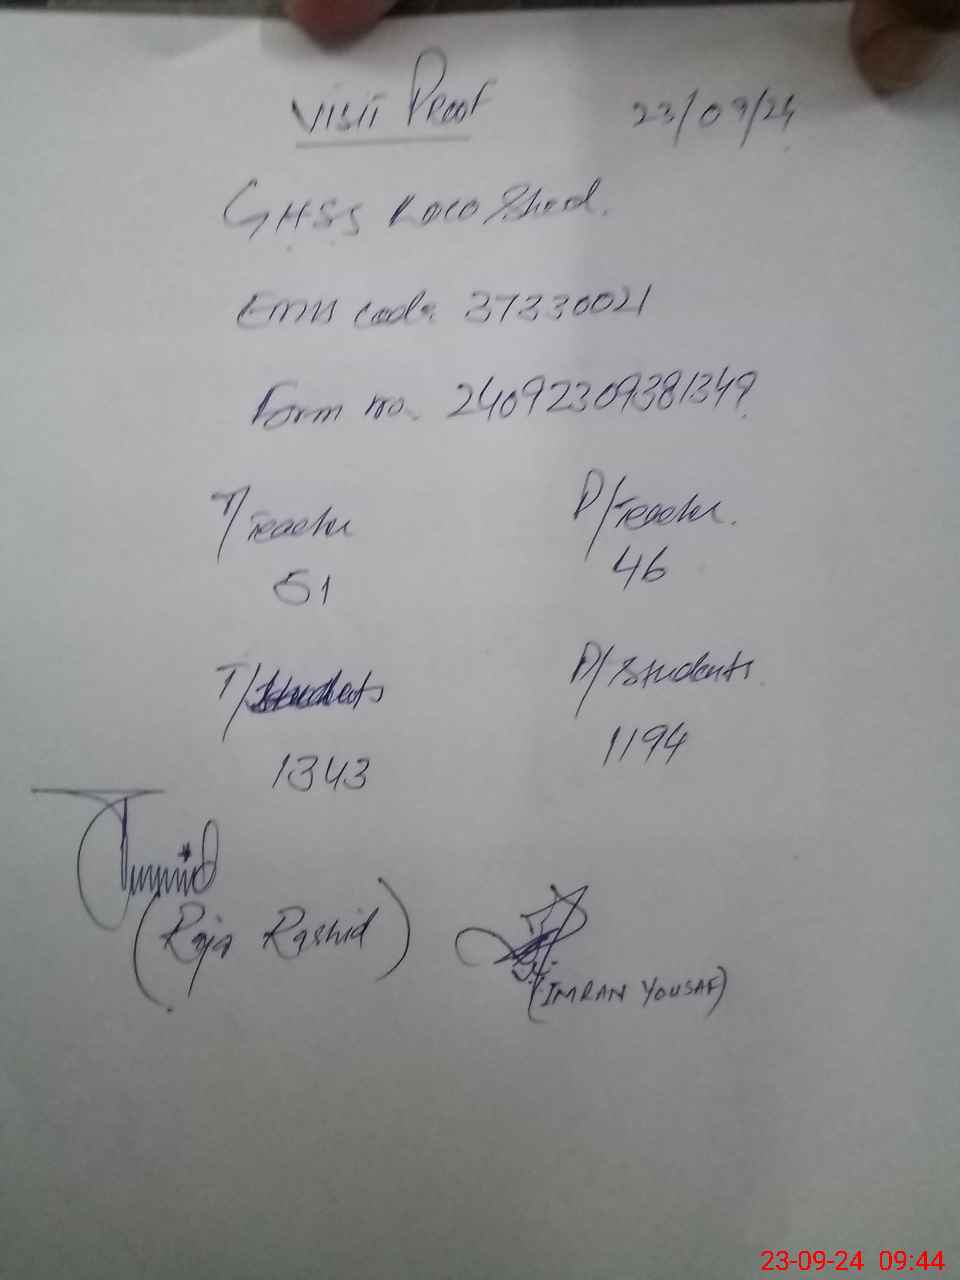 Visit Proof 23/09/24
GHSS Loco Shed.
EMIS code 37330021
Form no. 24092309381349
T/Teacher P/Teacher.
51 46
T/Students P/Students.
1343 1194
(Raja Rashid)
(IMRAN YOUSAF)
23-09-24 09:44